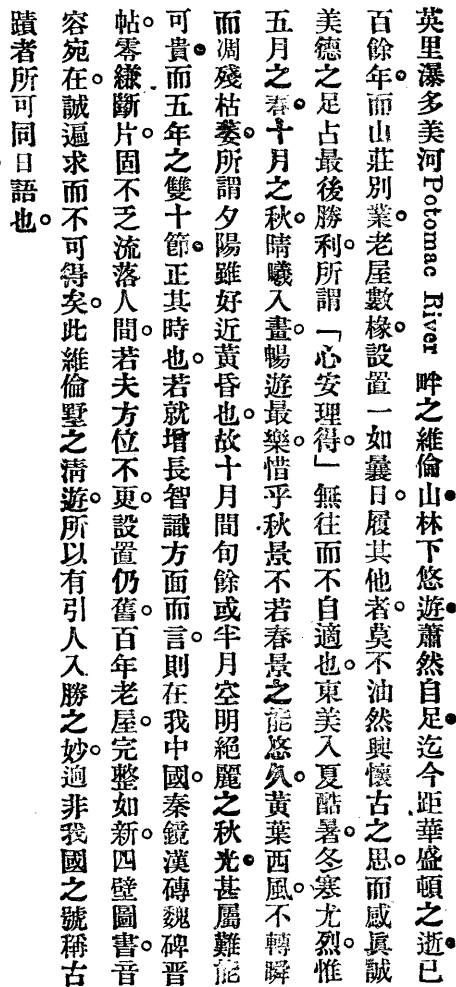 英里瀑多美河Potomac River 畔之維倫山林下悠遊蕭然自足迄今距華盛頓之逝已
百餘年而山莊別業老屋數椽設置一如曩日履其他者莫不油然興懷古之思而感眞誠
美德之足占最後勝利所謂「心安理得」無往而不自適也東美入夏酷暑冬寒尤烈惟
五月之春十月之秋晴曦入畫暢遊最樂惜乎秋景不若春景之能悠久黃葉西風不轉瞬
而凋殘枯萎所謂夕陽雖好近黃昏也故十月間旬餘或半月空明絕麗之秋光甚屬難能
可貴而五年之雙十節正其時也若就增長智識方面而言則在我中國秦鏡漢磚魏碑晋
帖零縑斷片固不乏流落人間若夫方位不更設置仍舊百年老屋完整如新四壁圖書音
容宛在誠遍求而不可得矣此維倫墅之淸遊所以有引人入勝之妙逈非我國之號稱古
蹟者所可同日語也